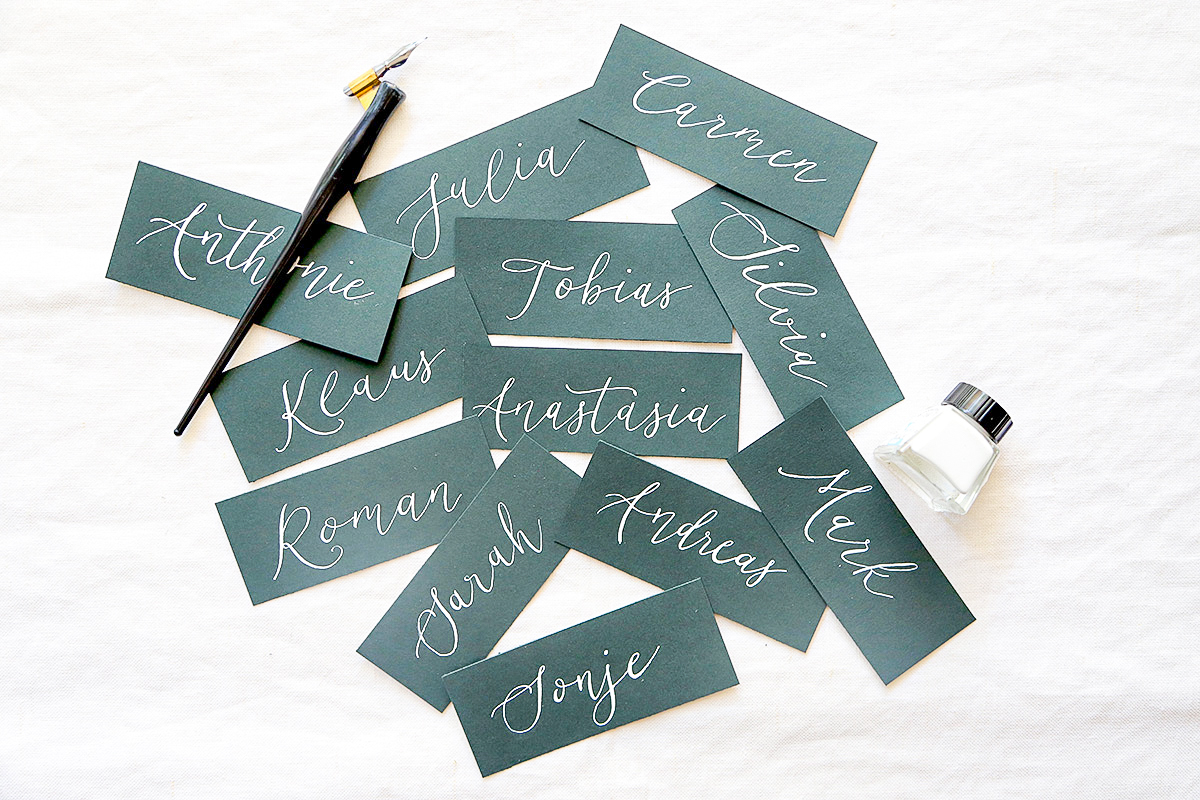 Carmen
Julia
Anthonie
Silvia
Tobias
Klaus
Anastasia
Roman
Sarah
Andreas
Mark
Sonje